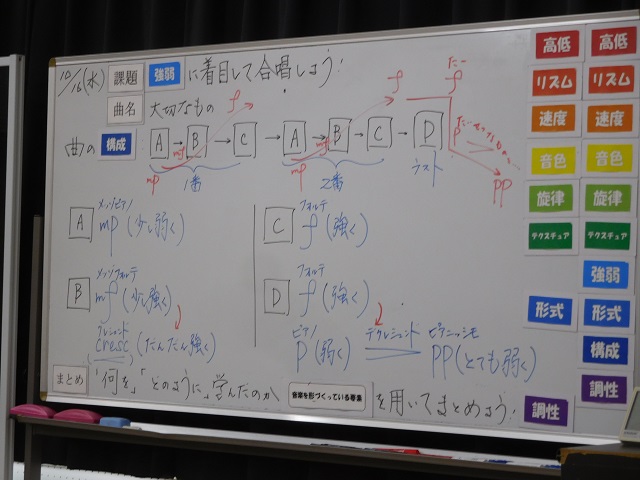 10/16(水) 課題 強弱 に着目して合唱しよう!
曲名 大切なもの
曲の 構成 A→B→C→A→B→C→D
mp mf f mp mf f
たー
f
p
pp
1番 2番 ラスト
A メッゾピアノ
mp (少し弱く)
B メッゾフォルテ
mf (少し強く)
クレシェンド
cresc (だんだん強く)
C フォルテ
f (強く)
D フォルテ
f (強く)
ピアノ デクレシェンド ピアニッシモ
p (弱く) pp (とても弱く)
まとめ 「何を」「どのように」学んだのか 音楽を形づくっている要素 を用いてまとめよう!
高低 高低
リズム リズム
速度 速度
音色 音色
旋律 旋律
テクスチュア テクスチュア
強弱
形式 形式
構成
調性
調性